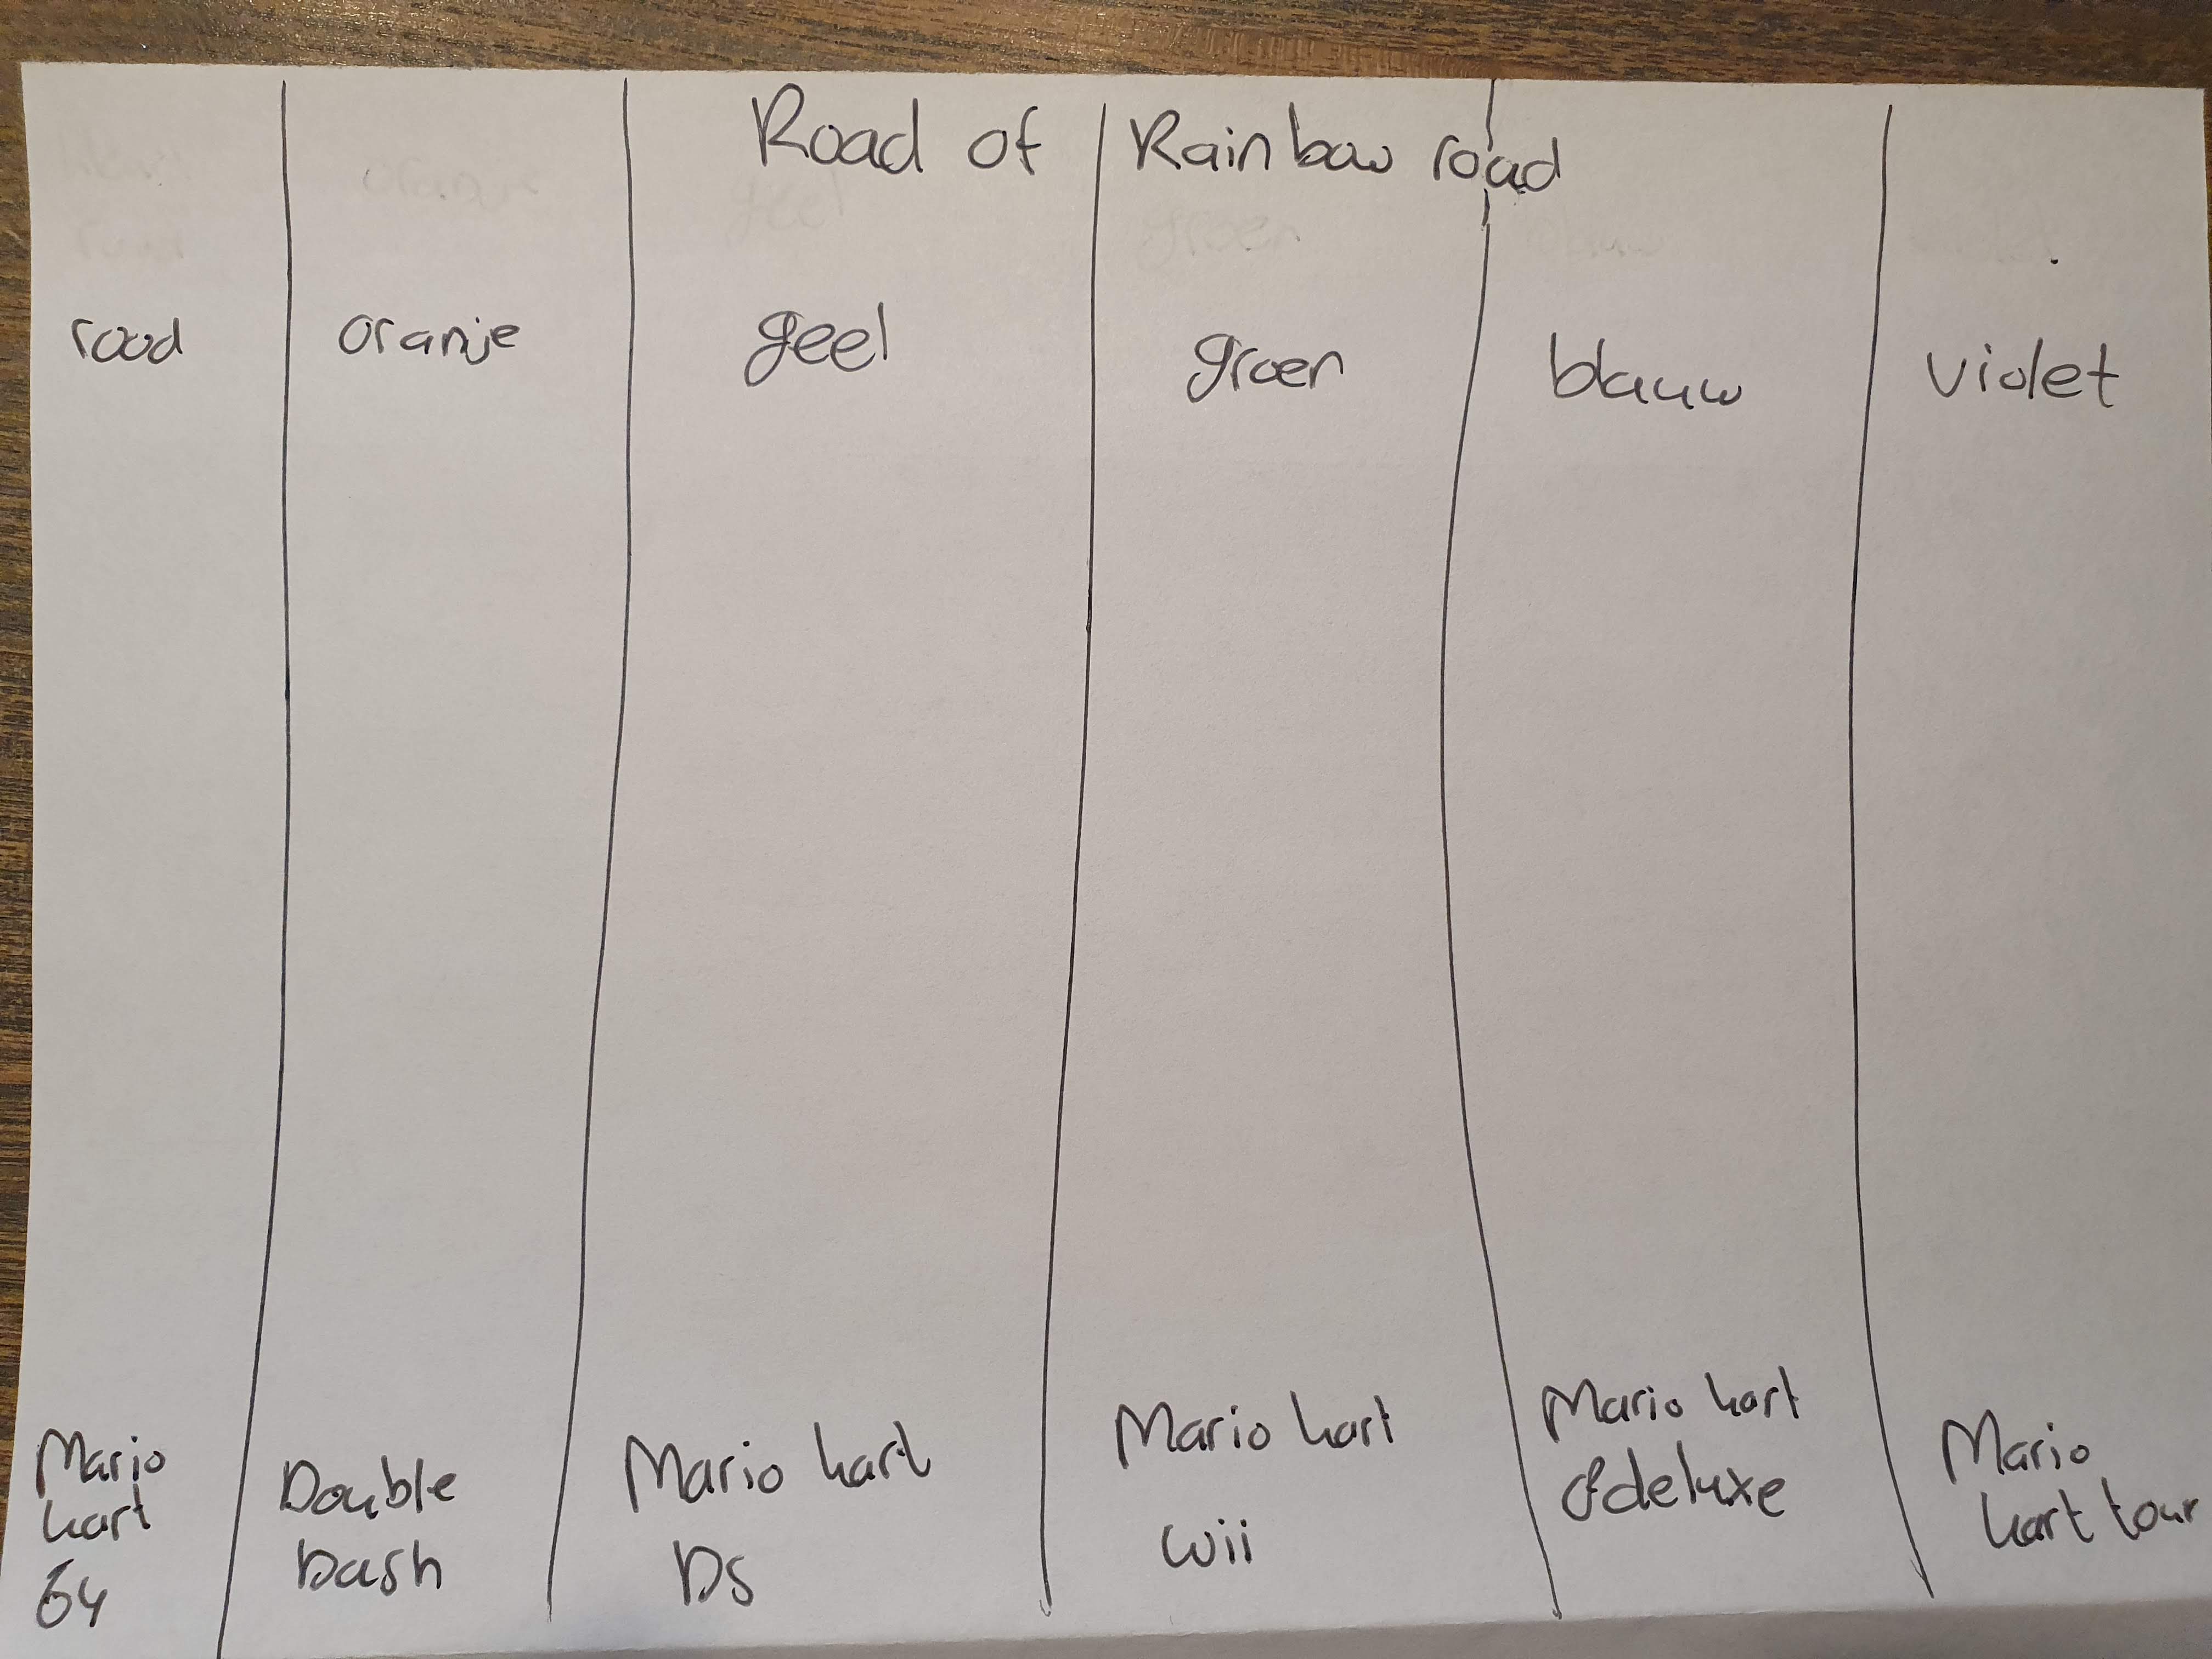 Road of Rainbow road
rood
oranje
geel
groen
blauw
violet
Mario
kart
64
Double
Dash
Mario kart
DS
Mario kart
wii
Mario kart
8deluxe
Mario
kart tour
oranje
geel
groen